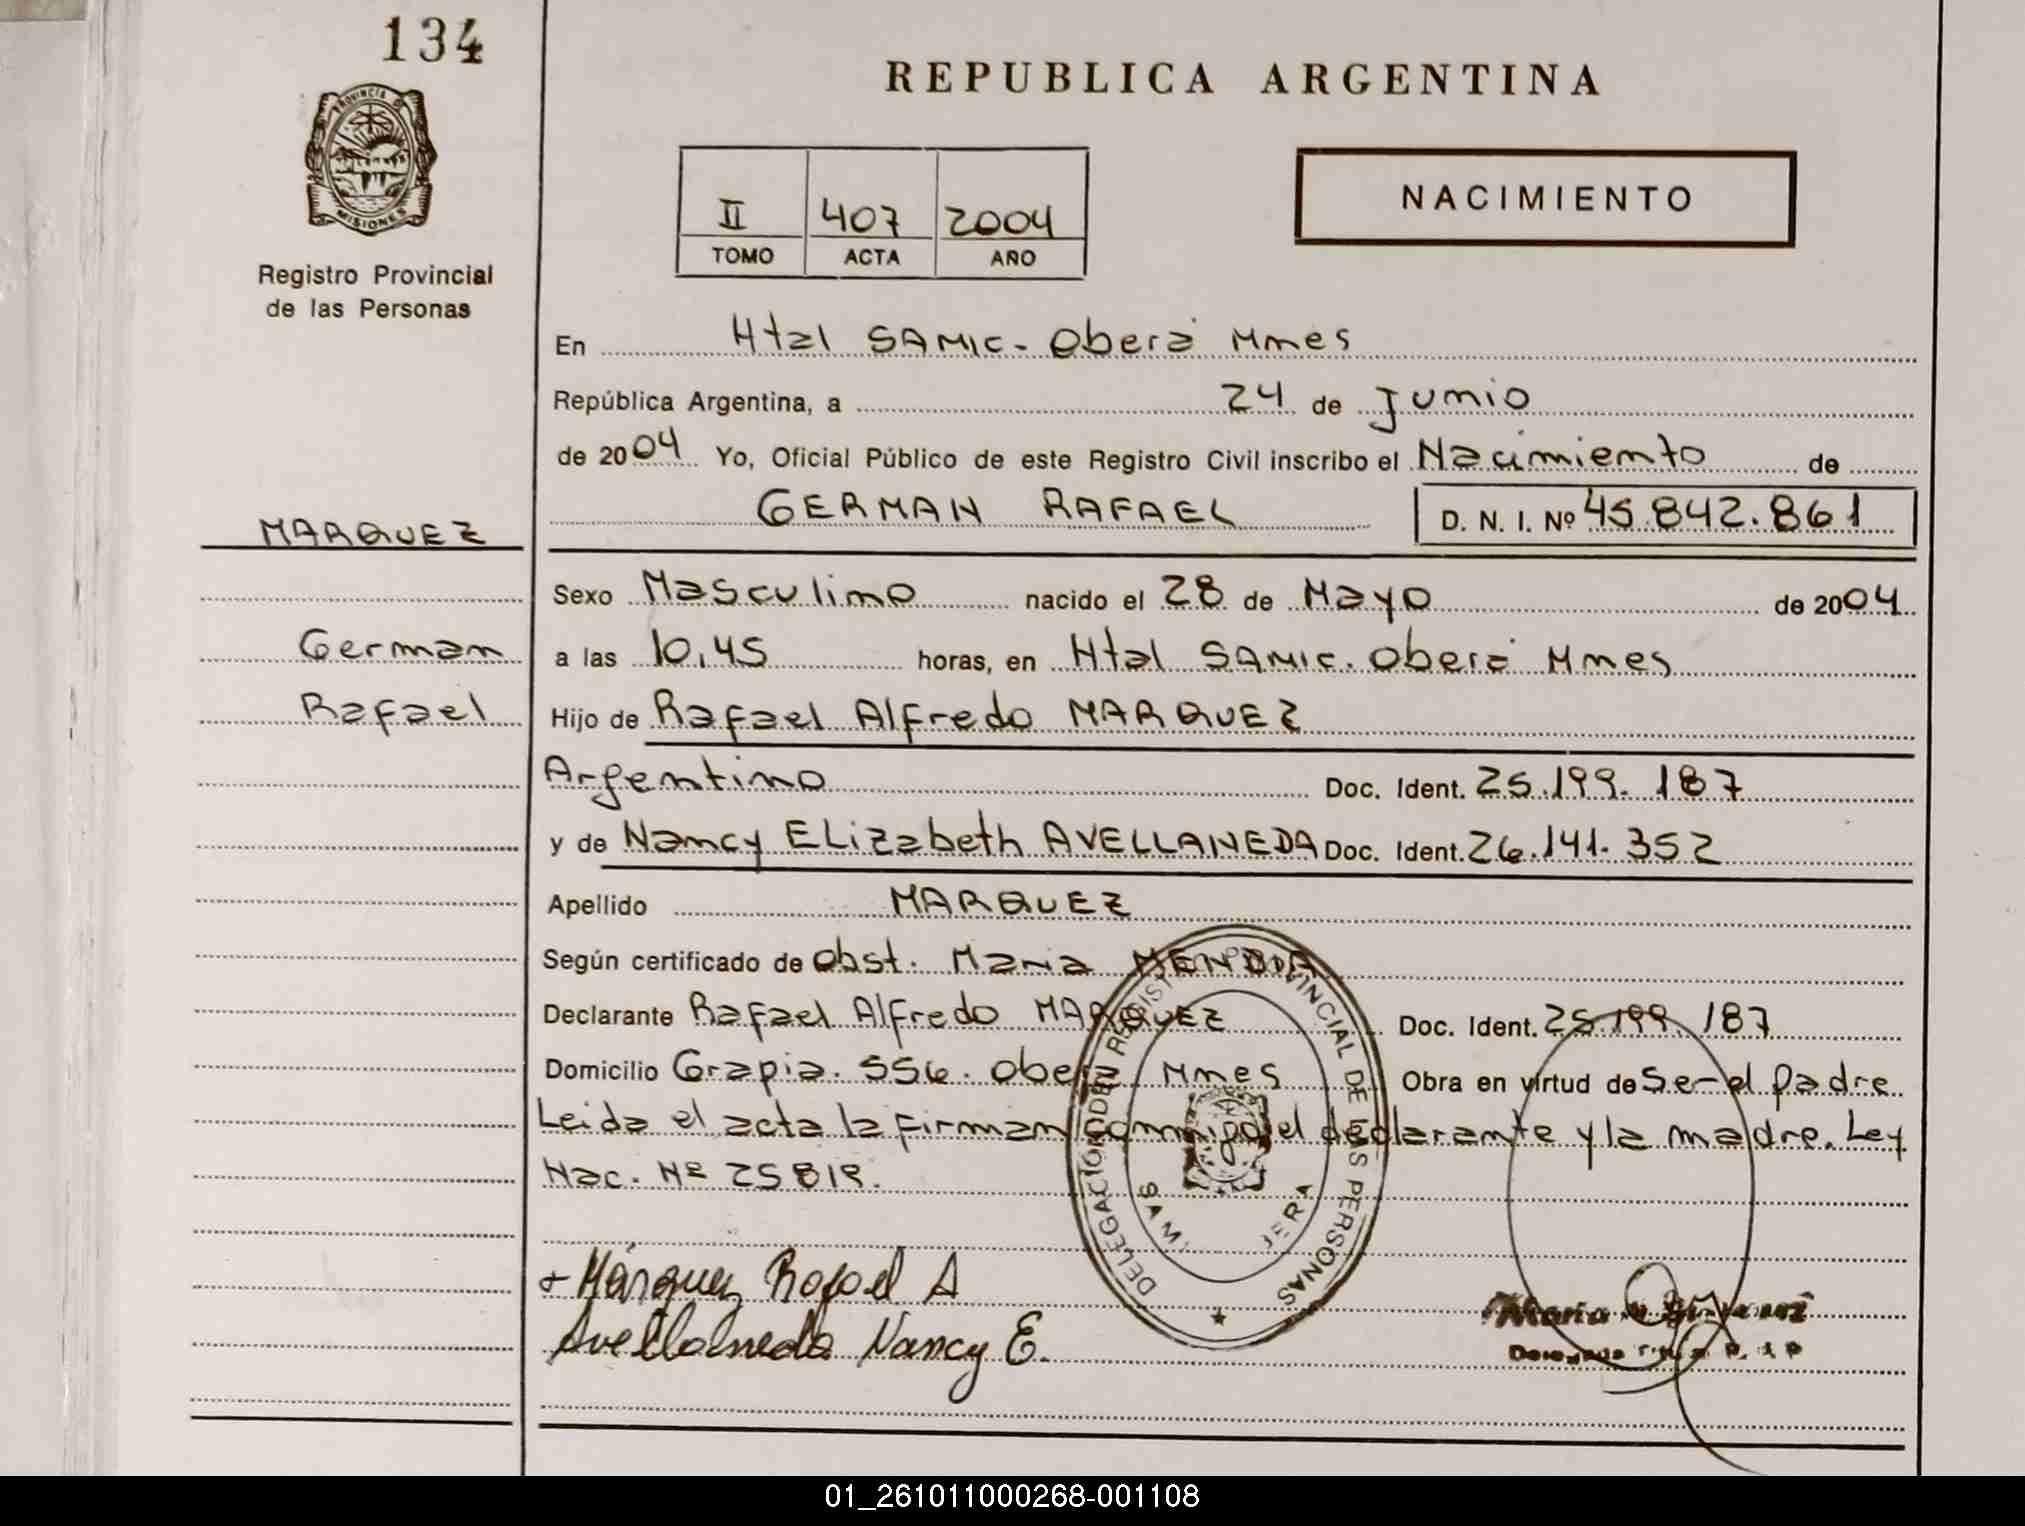 134
REPUBLICA ARGENTINA
PROVINCIA D
MISIONES
Registro Provincial
de las Personas
II 407 2004
TOMO ACTA AÑO
NACIMIENTO
En Htal SAMIC - Oberá Mnes
República Argentina, a 24 de Junio
de 2004 Yo, Oficial Público de este Registro Civil inscribo el Nacimiento de
GERMAN RAFAEL D. N. I. Nº 45.842.861
MARQUEZ
German
Rafael
Sexo Masculino nacido el 28 de Mayo de 2004
a las 10,45 horas, en Htal SAMIC. Oberá Mnes
Hijo de Rafael Alfredo MARQUEZ
Argentino Doc. Ident. 25.199.187
y de Nancy ELizabeth AVELLANEDA Doc. Ident. 26.141.352
Apellido MARQUEZ
Según certificado de Obst. Maria
Declarante Rafael Alfredo MARQUEZ Doc. Ident. 25.199.187
Domicilio Grapia. 556. Oberá Mnes Obra en virtud de Ser el padre
Leida el acta la firman conmigo el declarante y la madre. Ley
Nac. Nº 25819.
DELEGACION DEL REGISTRO PROVINCIAL DE LAS PERSONAS
+ Márquez Rafael A
Avellaneda Nancy E.
Maria
01_261011000268-001108